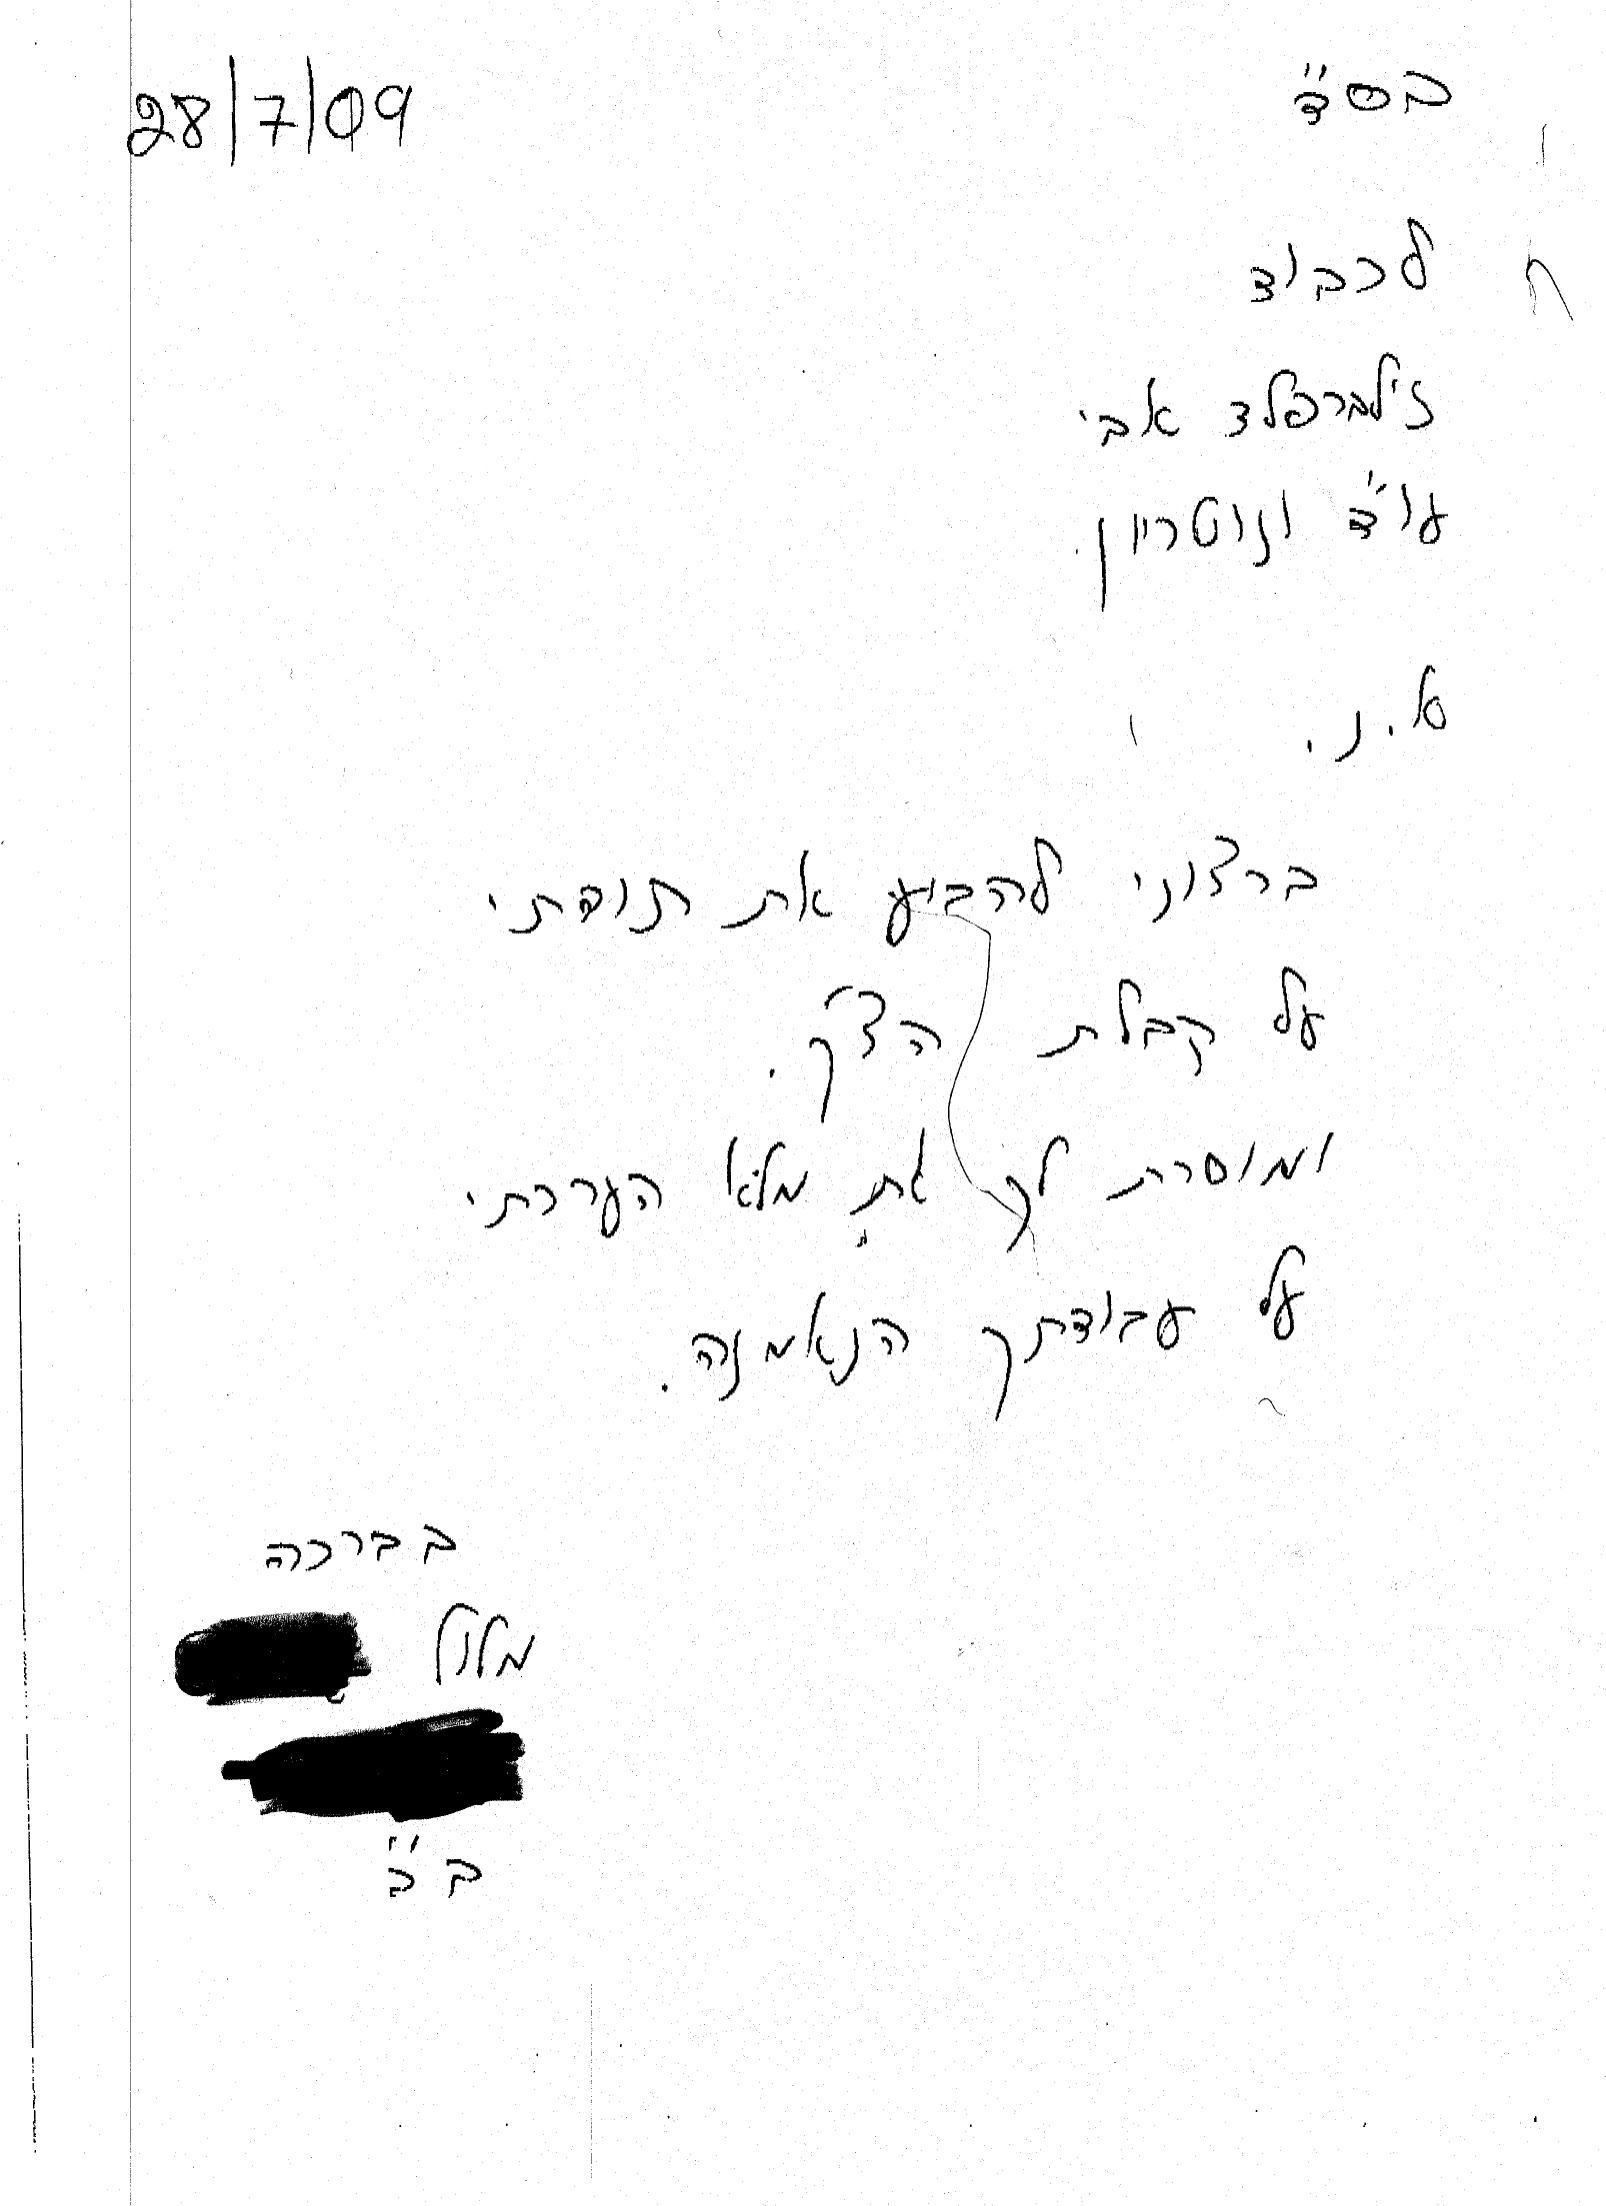 בס"ד
28/7/09
לכבוד
זילברפלד אבי
עו"ד ונוטריון.
א.נ.
ברצוני להביע את תודתי
על קבלת הצ'ק.
ומוסרת לך את מלא הערכתי
על עבודתך הנאמנה.
בברכה
מלול
ב"כ